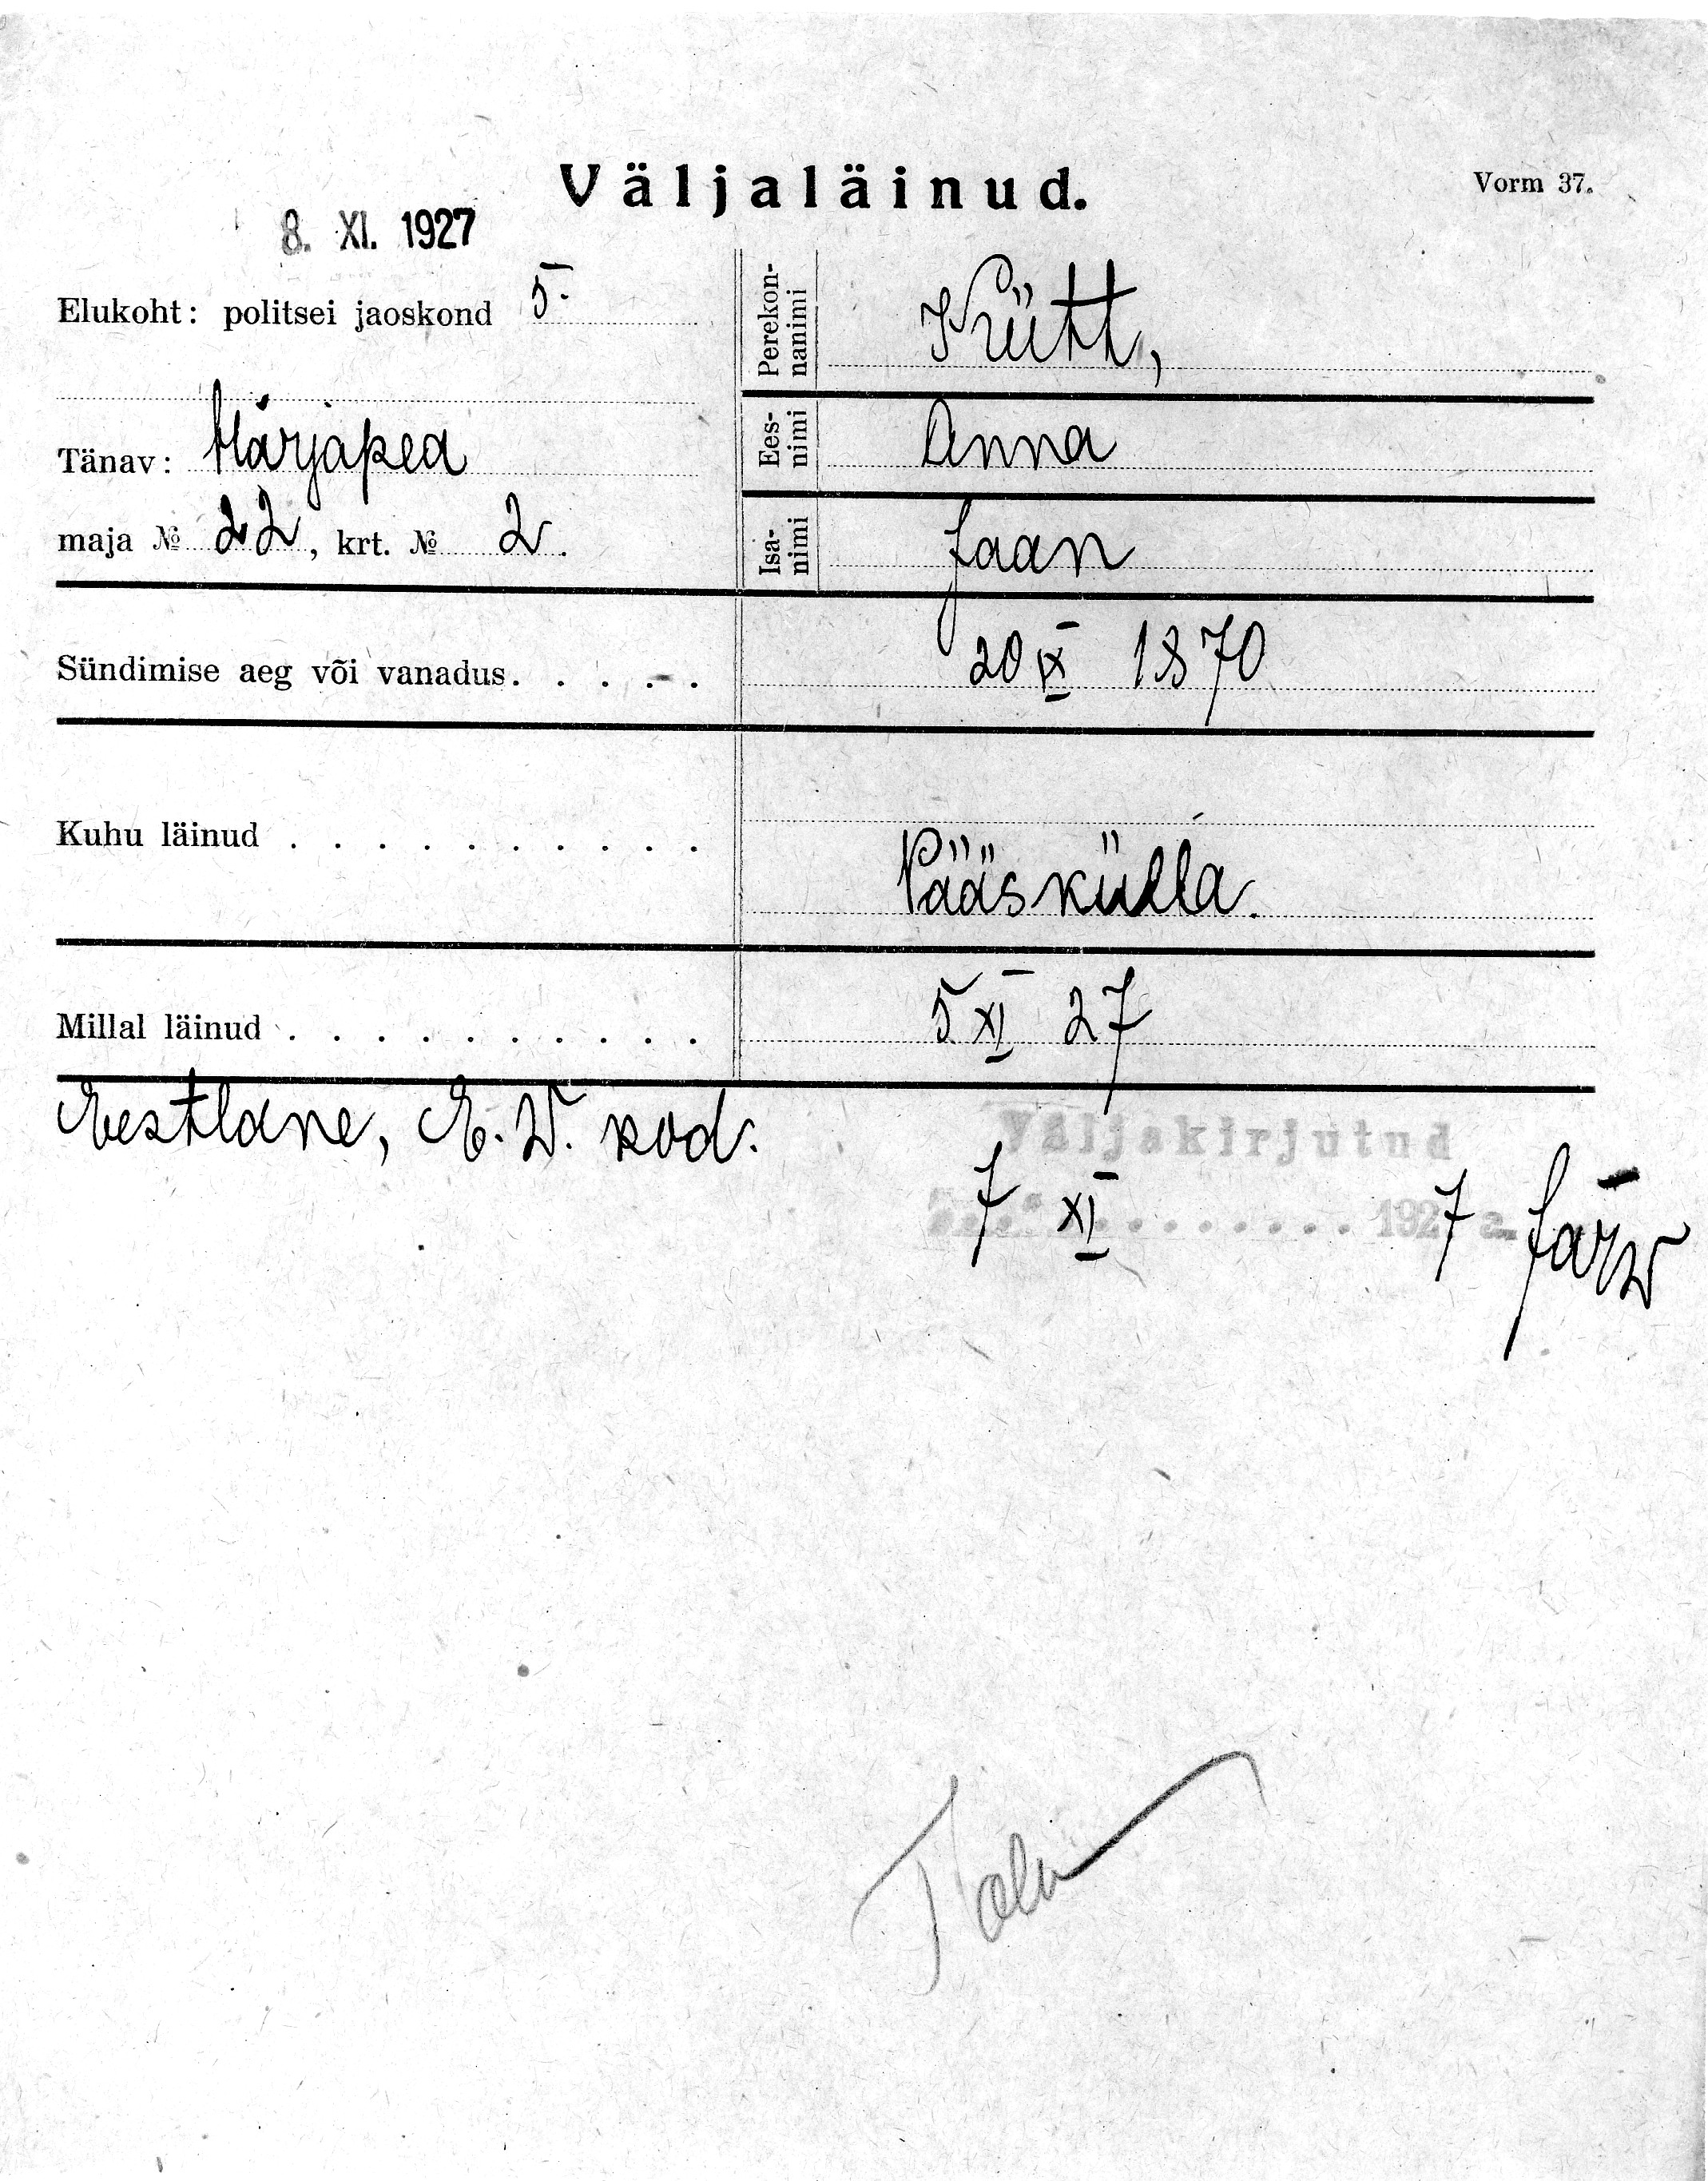 Väljaläinud.
Vorm 37.
8. XI. 1927
Elukoht: politsei jaoskond 5.
Tänav: Härjapea
maja № 22, krt. № 2.
Perekon-
nanimi
Kütt,
Ees-
nimi
Anna
Isa-
nimi
Jaan
Sündimise aeg või vanadus. . . . . 20 IX 1870
Kuhu läinud . . . . . . . . . .
Pääsküllä.
Millal läinud . . . . . . . . . . 5 XI 27
Eestlane, E.W. kod.
Väljakirjutud
7 XI 1927 a. Järw